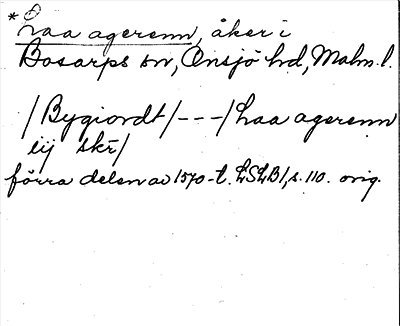 * Laa agerenn, åker i
Bosarps sn, Onsjö hd, Malm. l.
/Bygiordt/---/Laa agerenn
iij skr/
förra delen av 1570-t. LSLB1, s. 110. orig.